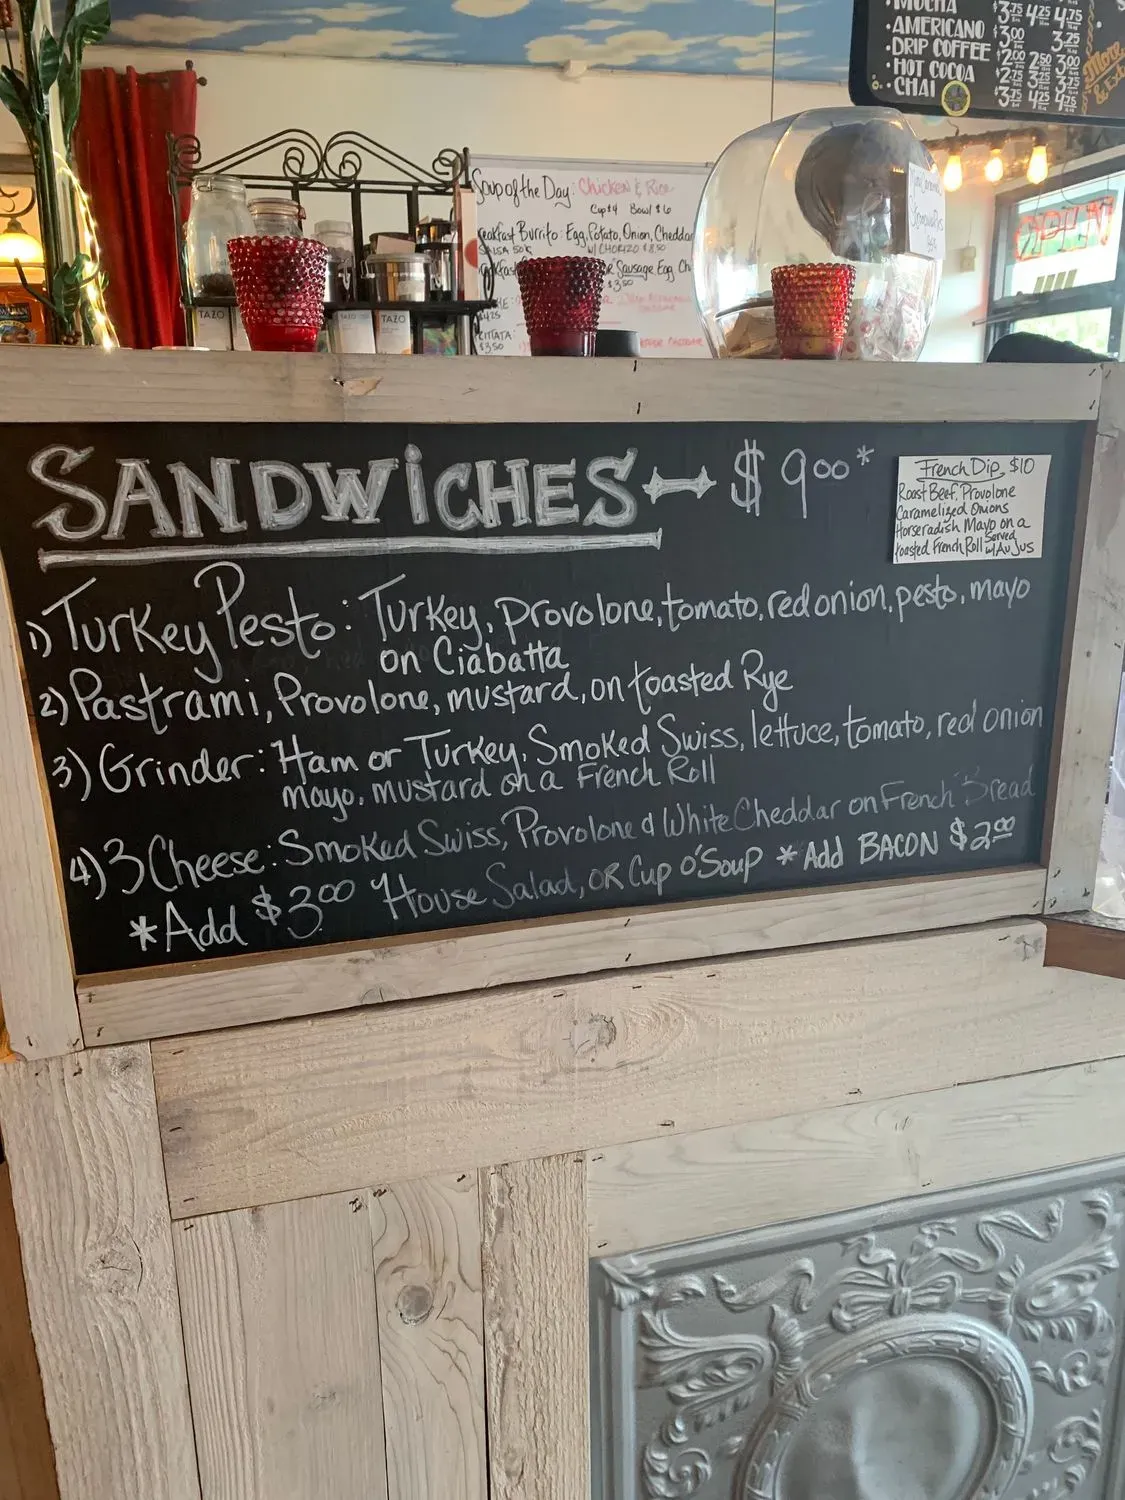 MOCHA $3.75 4.25 4.75
• AMERICANO $3.00 3.25
• DRIP COFFEE $2.00 2.50 3.00
• HOT COCOA $2.75 3.25 3.75
• CHAI $3.75 4.25 4.75
More
Soup of the Day: Chicken & Rice
Cup $4 Bowl $6
Burrito: Egg, Potato, Onion, Cheddar
SALSA 50¢ W/ CHORIZO $8.50
Sausage, Egg,
$3.50
$3.50
TAZO TAZO
OPEN
SANDWICHES ↔ $9.00*
French Dip, $10
Roast Beef, Provolone
Caramelized Onions
Horseradish Mayo on a
toasted French Roll Served w/ Au Jus
1) Turkey Pesto: Turkey, provolone, tomato, red onion, pesto, mayo
on Ciabatta
2) Pastrami, Provolone, mustard, on toasted Rye
3) Grinder: Ham or Turkey, Smoked Swiss, lettuce, tomato, red onion
mayo, mustard on a French Roll
4) 3 Cheese: Smoked Swiss, Provolone & White Cheddar on French Bread
*Add $3.00 House Salad, OR Cup o'Soup *Add BACON $2.00